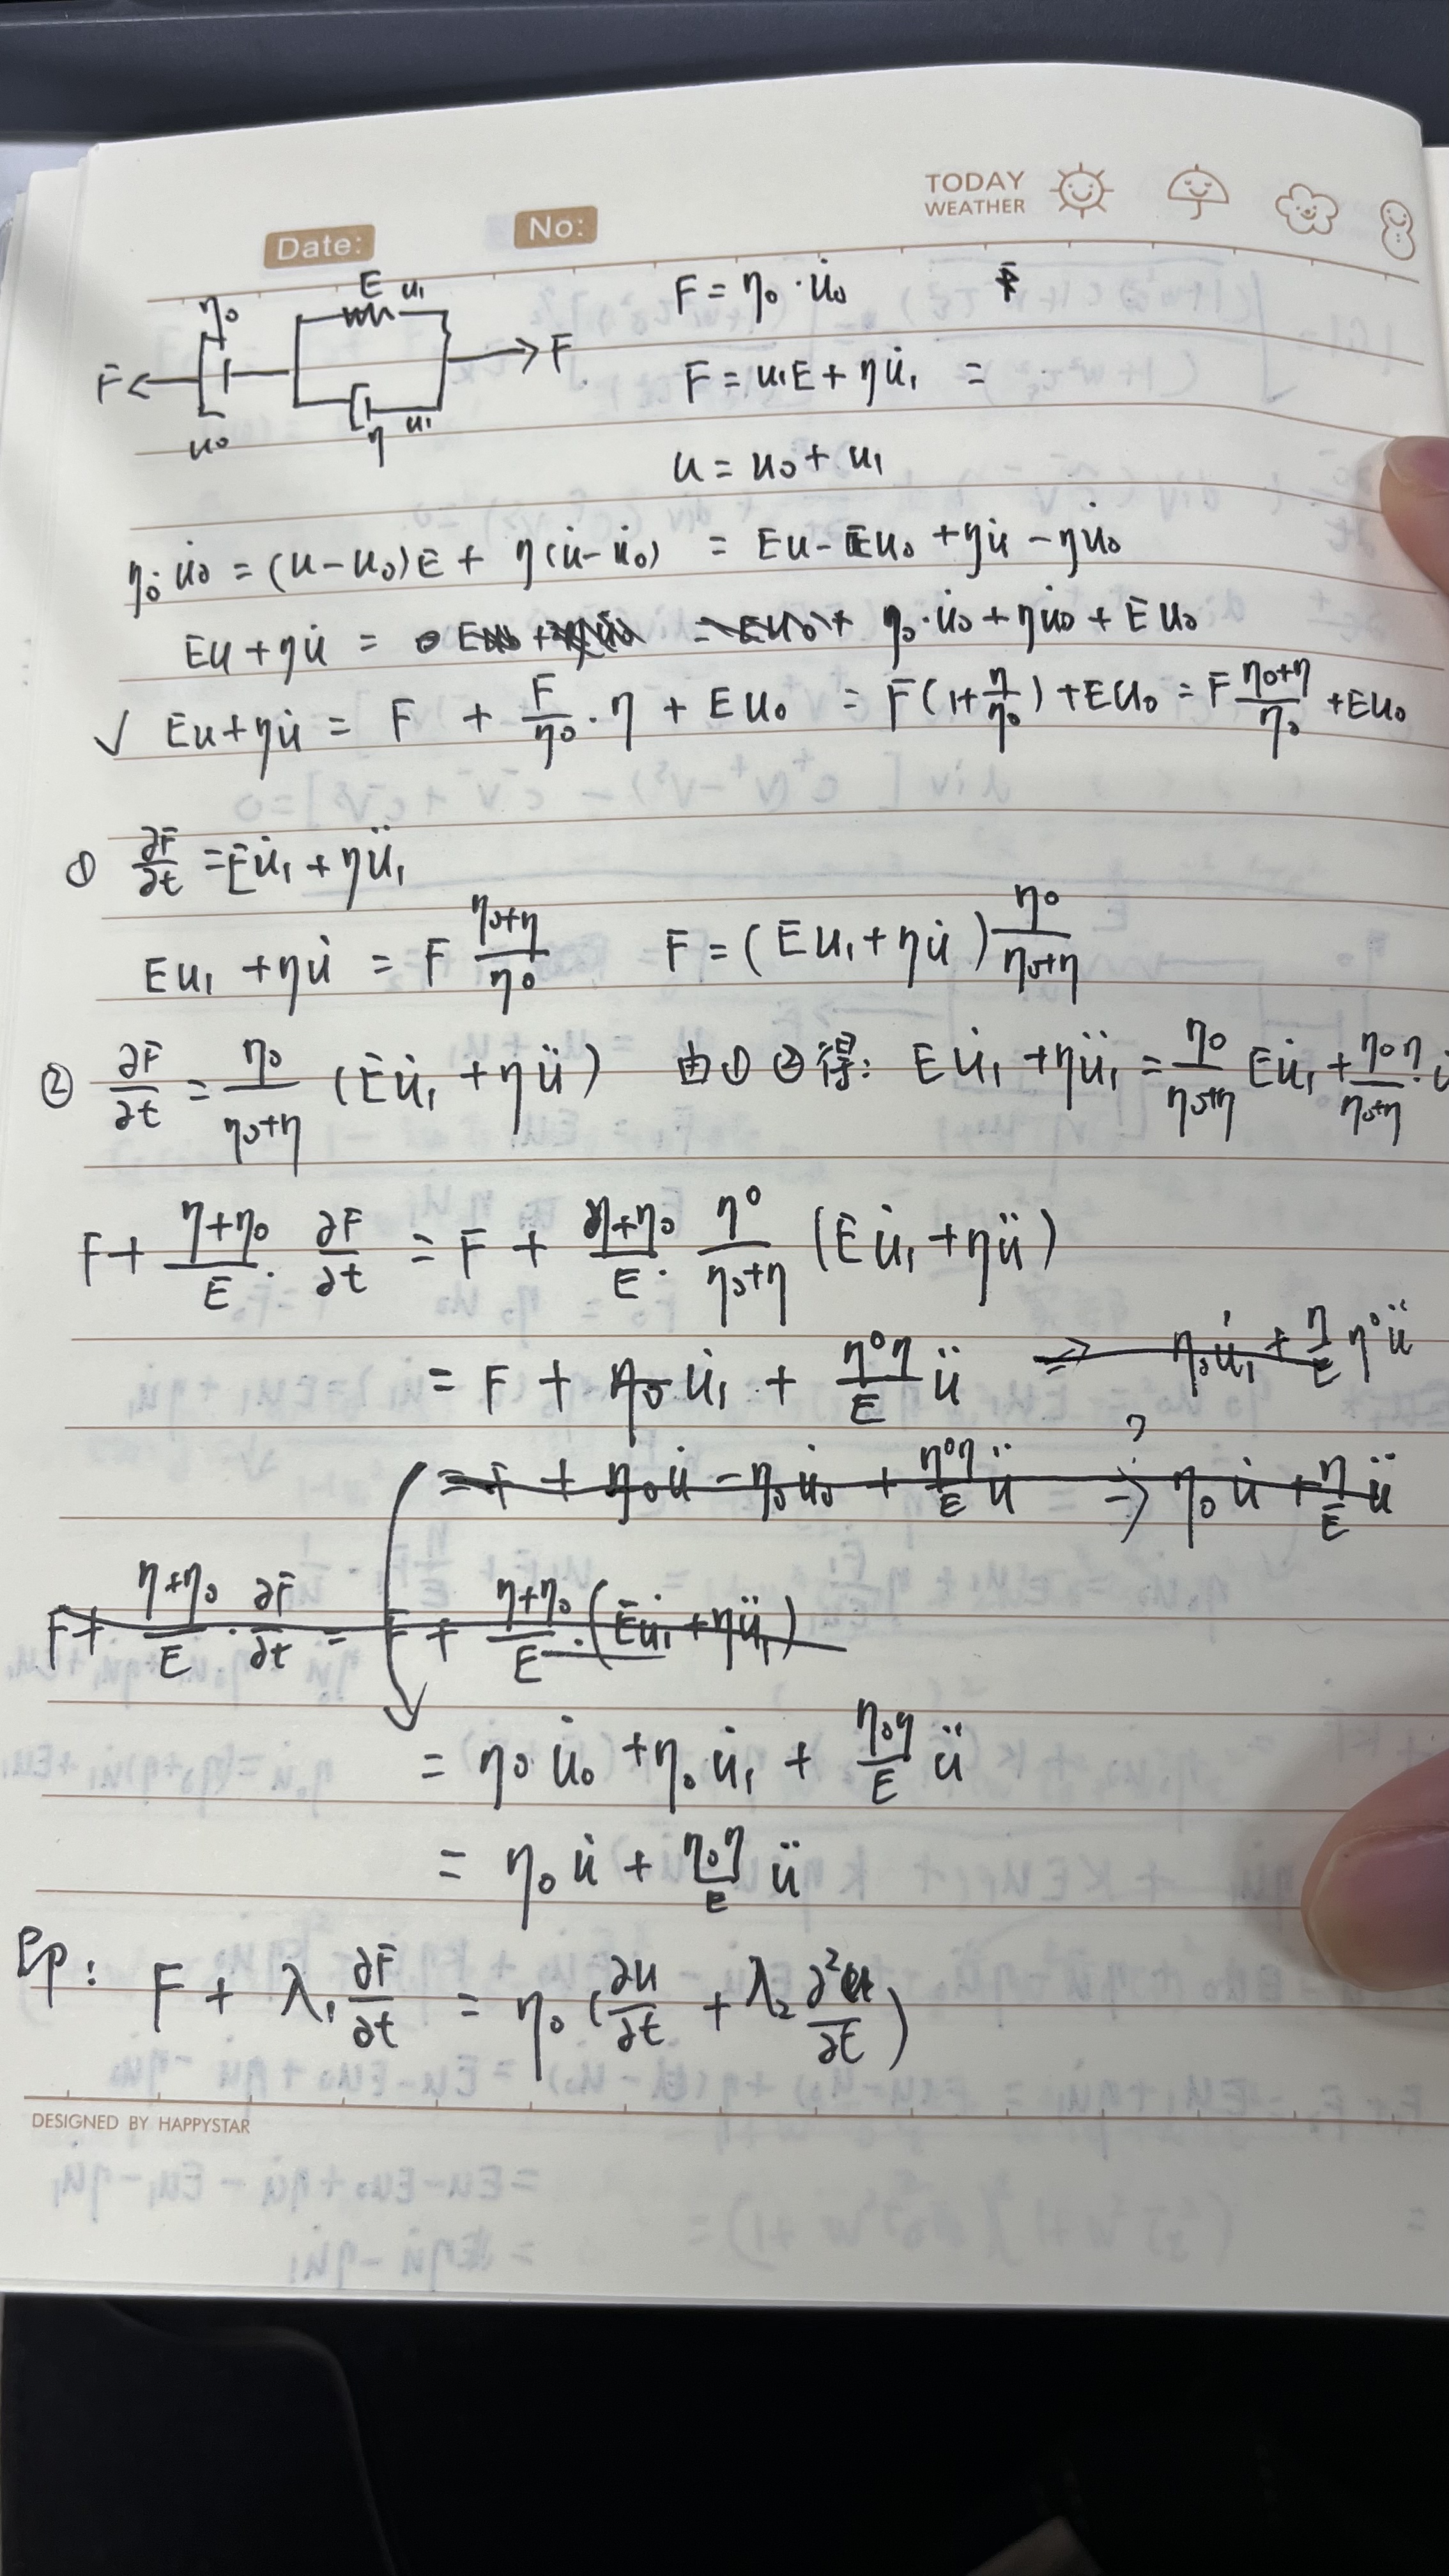 TODAY WEATHER
Date: No:
η₀ E u₁ F = η₀ · u̇₀ F
F F F = u₁E + ηu̇₁ =
u₀ η u₁
u = u₀ + u₁
η₀ · u̇₀ = (u - u₀)E + η(u̇ - u̇₀) = Eu - Eu₀ + ηu̇ - ηu̇₀
Eu + ηu̇ = η₀ · u̇₀ + ηu̇₀ + Eu₀
√ Eu + ηu̇ = F + F/η₀ · η + Eu₀ = F(1 + η/η₀) + Eu₀ = F (η₀+η)/η₀ + Eu₀
① ∂F/∂t = Eu̇₁ + ηü₁
Eu₁ + ηu̇ = F (η₀+η)/η₀ F = (Eu₁ + ηu̇) η₀/(η₀+η)
② ∂F/∂t = η₀/(η₀+η) (Eu̇₁ + ηü) 由①②得: Eu̇₁ + ηü₁ = η₀/(η₀+η) Eu̇₁ + η₀η/(η₀+η) ·
F + (η+η₀)/E · ∂F/∂t = F + (η+η₀)/E · η₀/(η₀+η) (Eu̇₁ + ηü)
= F + η₀u̇₁ + η₀η/E ü ⇒ η₀u̇₁ + η/E η₀ü
= F + η₀u̇ - η₀u̇₀ + η₀η/E ü ⇒ ? η₀u̇ + η/E ü
F + (η+η₀)/E · ∂F/∂t = F + (η+η₀)/E · (Eu̇₁ + ηü₁)
= η₀ u̇₀ + η₀ u̇₁ + η₀η/E ü
= η₀ u̇ + η₀η/E ü
即: F + λ₁ ∂F/∂t = η₀ (∂u/∂t + λ₂ ∂²u/∂t)
DESIGNED BY HAPPYSTAR